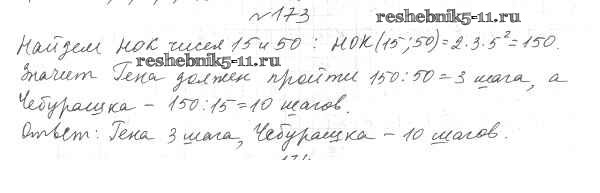 №173
reshebnik5-11.ru
Найдем НОК чисел 15 и 50 : НОК(15;50)=2·3·5²=150.
reshebnik5-11.ru
Значит Гена должен пройти 150:50=3 шага, а
Чебурашка – 150:15=10 шагов.
Ответ: Гена 3 шага, Чебурашка – 10 шагов.